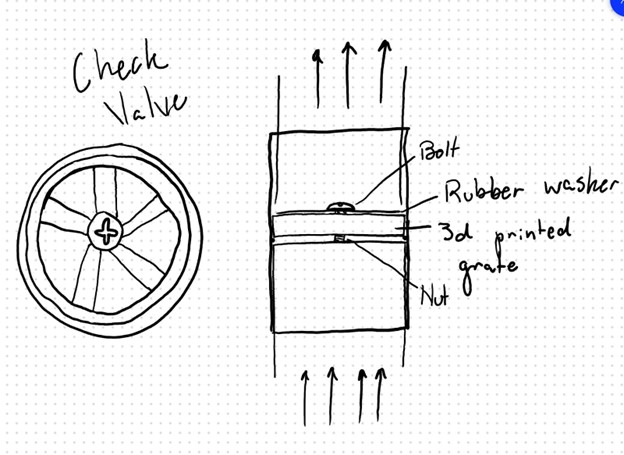 Check
Valve
Bolt
Rubber washer
3d printed
grate
Nut